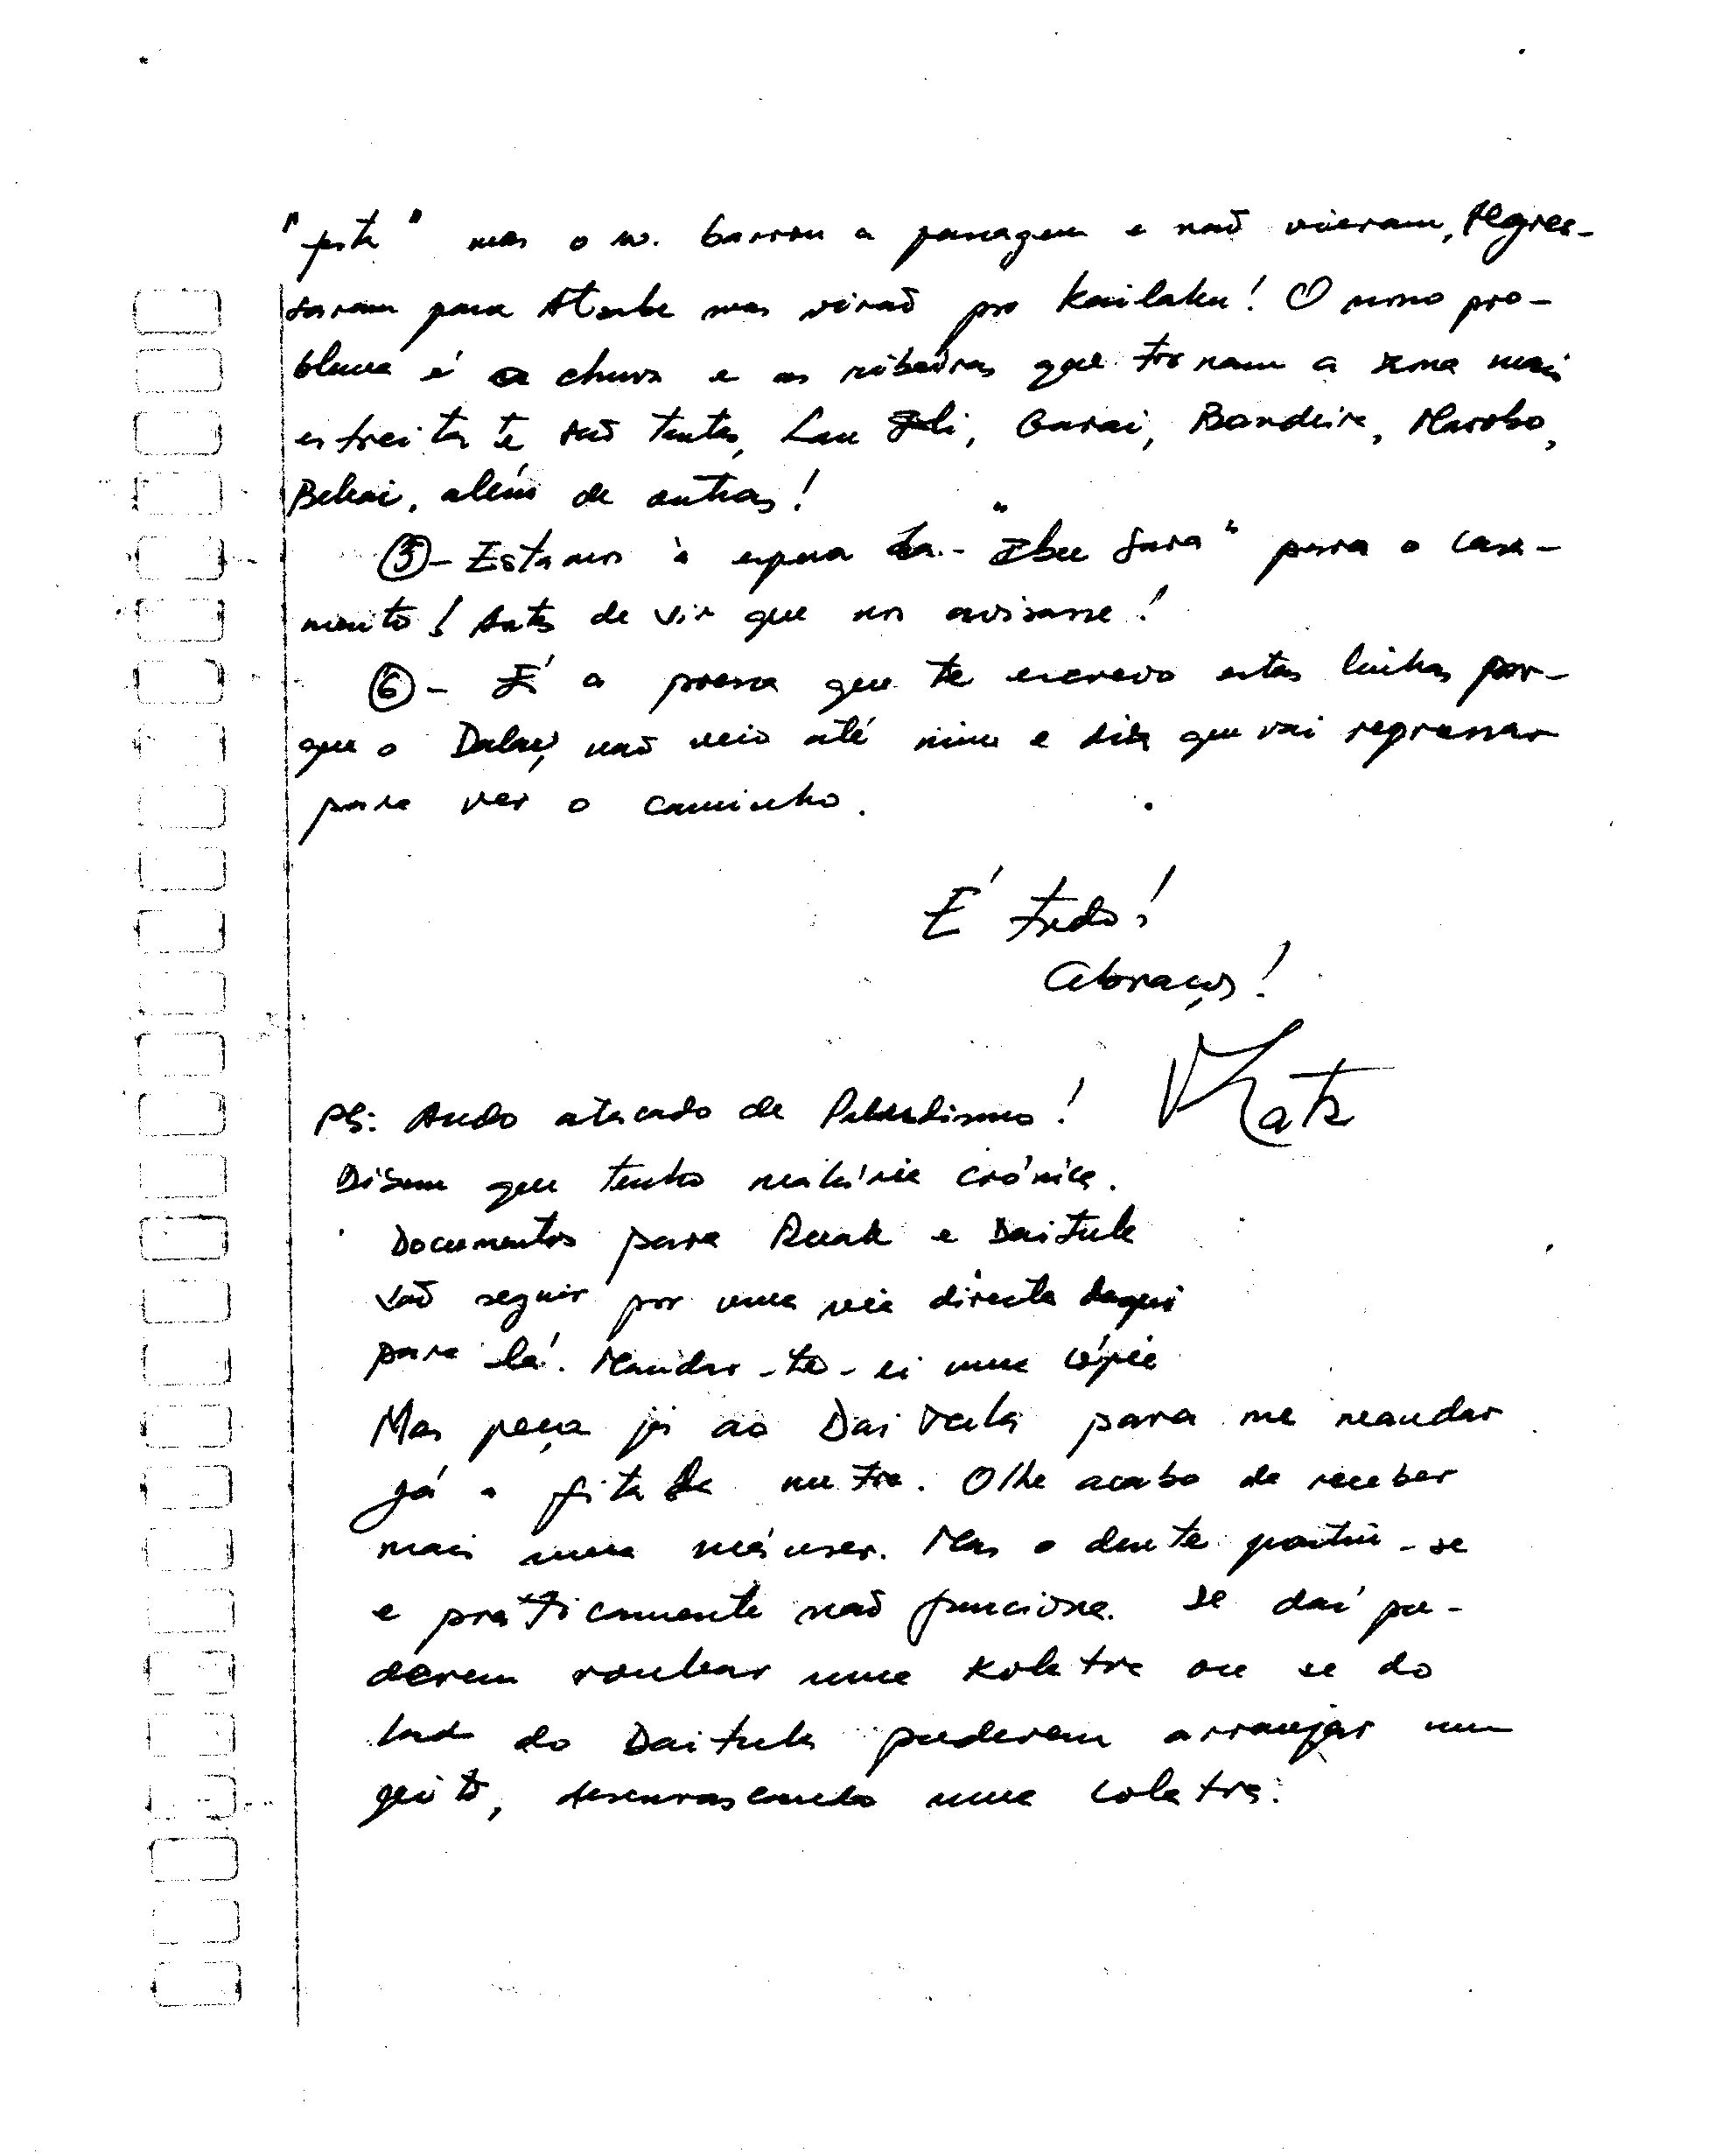 "festa" mas o in. barrou a passagem e não vieram, Regres-
saram para Atsabe mas virão por Kailaku! O nosso pro-
blema é a chuva e as ribeiras que tornam a zona mais
estreita e são tantas, Lau Eli, Garai, Bandeira, Marobo,
Bekai, além de outras!
⑤ - Estamos à espera da - "Ibu Sura" para o casa-
mento! Antes de vir que nos avisasse!
⑥ - É a pressa que te escrevo estas linhas por-
que o não veio até mim e diz que vai regressar
para ver o caminho.
É tudo!
Abraços!
PS: Ando atacado de Paludismo!
Dizem que tenho malária crónica.
Documentos para Ruak e Daitula
vão seguir por uma via directa daqui
para lá. Mandar-te-ei uma cópia
Mas peça já ao Daitula para me mandar
já a fita da metra. Olhe acabo de receber
mais uma máuser. Mas o dente partiu-se
e práticamente não funciona. Se daí pu-
derem roubar uma koletra ou se do
lado do Daitula puderem arranjar um
geito, desenrascando uma coletra.